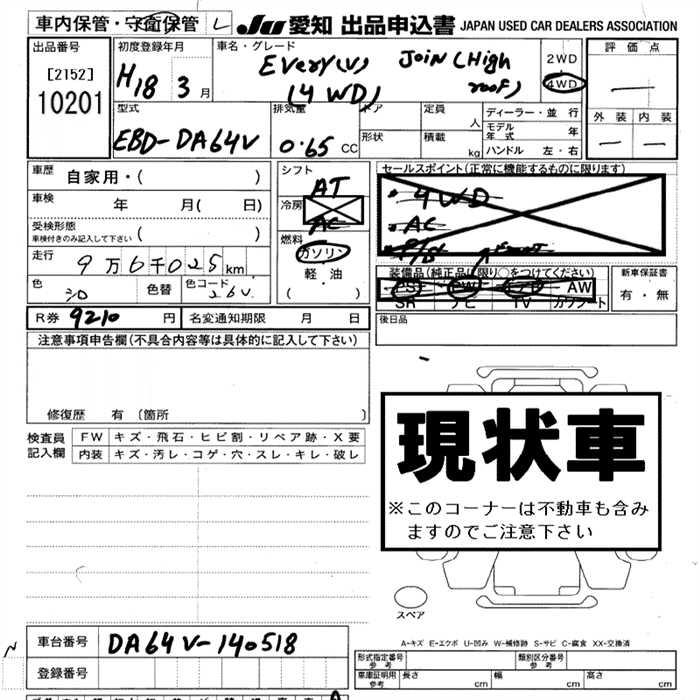 車内保管・守衛保管 L JU 愛知 出品申込書 JAPAN USED CAR DEALERS ASSOCIATION
出品番号 初度登録年月 車名・グレード 評価点
[2152] H18 3月 Every(V) JOIN (High 2WD
10201 (4WD) roof) 4WD
型式 排気量 ドア 定員 人 ディーラー・並行 外装 内装
EBD-DA64V 0.65 CC 形状 積載 kg モデル年式 年
ハンドル 左・右
車歴 自家用・( ) シフト AT セールスポイント(正常に機能するものに限ります)
車検 年 月( 日) 冷房 AC ・4WD
受検形態 ( ) ・AC
車検付きのみ記入して下さい 燃料 ・P/S
走行 9万6千025km ガソリン 装備品(純正品に限り○をつけてください) 新車保証書
色 色替 色コード 26V 軽・油 PS PW エアB AW 有・無
( ) SR ナビ TV カワシート
R券 9210 円 名変通知期限 月 日 後日品
注意事項申告欄(不具合内容等は具体的に記入して下さい)
修復歴 有 〔箇所
検査員 FW キズ・飛石・ヒビ割・リペア跡・X要
記入欄 内装 キズ・汚レ・コゲ・穴・スレ・キレ・破レ
現状車
※このコーナーは不動車も含み
ますのでご注意下さい
スペア
車台番号 DA64V-140518
A-キズ E-エクボ U-凹み W-補修跡 S-サビ C-腐食 XX-交換済
登録番号 形式指定番号 参考 類別区分番号 参考
車庫証明用 参考 長さ cm 幅 cm 高さ cm